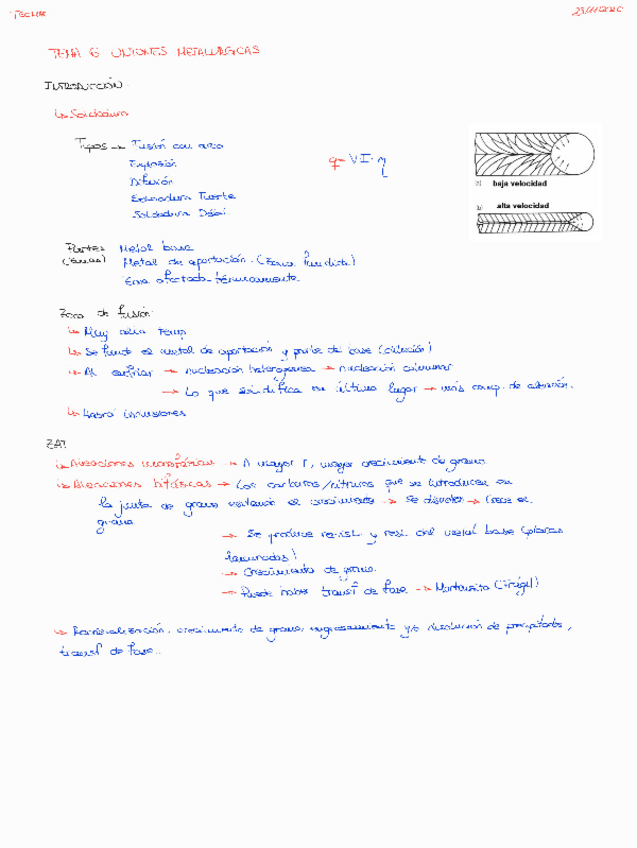 TECMA
23/11/2020
TEMA 6 UNIONES METALÚRGICAS
INTRODUCCIÓN.
↳ Soldadura
Tipos → Fusión con arco
Explosión
Difusión
Soldadura Fuerte
Soldadura Débil
q = V·I·η
a) baja velocidad
b) alta velocidad
Partes Metal base
(zonas) Metal de aportación. (Zona fundida)
Zona afectada térmicamente
Zona de fusión:
↳ Muy alta temp
↳ Se funde el metal de aportación y parte del base (dilución)
↳ Al enfriar → nucleación heterogénea → nucleación columnar
→ Lo que solidifica en último lugar → más comp. de aleación.
↳ Habrá inclusiones
ZAT
↳ Aleaciones monofásicas → A mayor T, mayor crecimiento de grano.
↳ Aleaciones bifásicas → Los carburos/nitruros que se introducen en
la junta de grano
el crecimiento → Se disuelve → Crece el
grano
→ Se produce
y
del metal base (placas
laminadas)
→ Crecimiento de grano.
→ Puede haber transf de fase → Martensita (frágil)
↳ Recristalización, crecimiento de grano, engrosamiento y/o disolución de precipitados,
transf de fase..